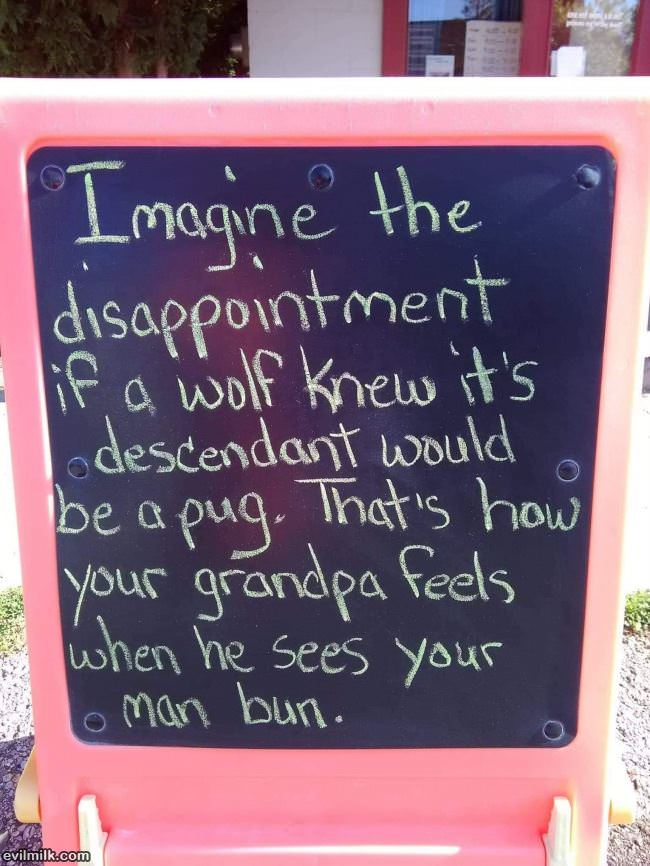 Imagine the
disappointment
if a wolf knew it's
descendant would
be a pug. That's how
your grandpa feels
when he sees your
man bun.
evilmilk.com